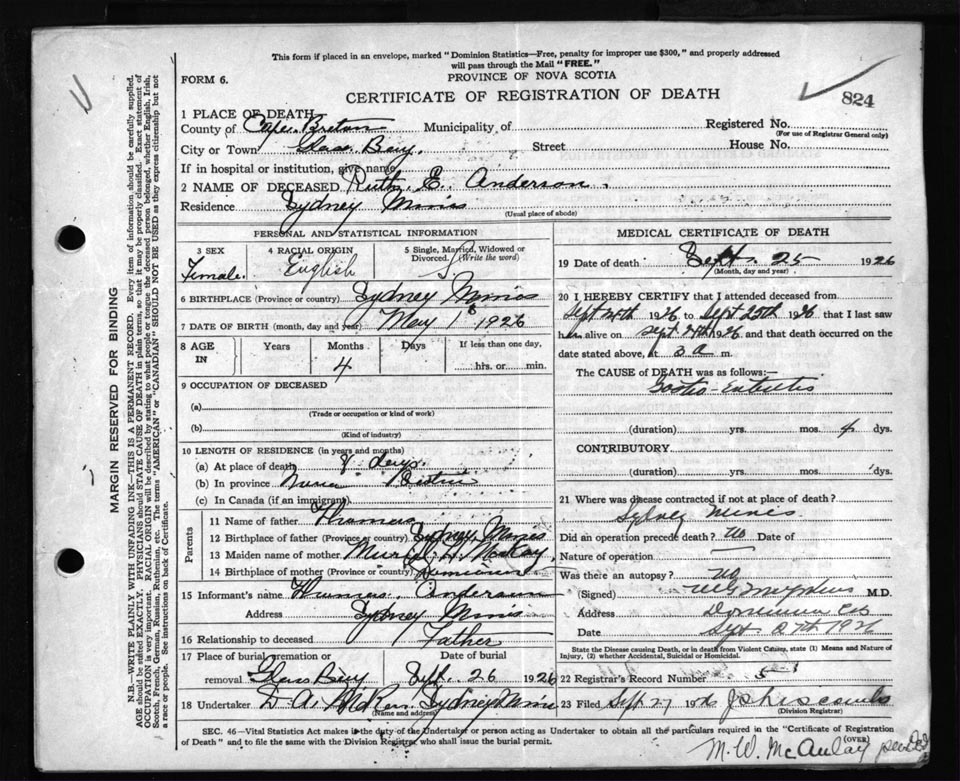 This form if placed in an envelope, marked "Dominion Statistics—Free, penalty for improper use $300," and properly addressed
will pass through the Mail "FREE."
FORM 6.
PROVINCE OF NOVA SCOTIA
CERTIFICATE OF REGISTRATION OF DEATH
824
1 PLACE OF DEATH
County of Cape Breton Municipality of Registered No.
(For use of Registrar General only)
City or Town Glace Bay. Street House No.
If in hospital or institution, give name
2 NAME OF DECEASED Ruth E. Anderson.
Residence Sydney Mines
(Usual place of abode)
PERSONAL AND STATISTICAL INFORMATION
3 SEX 4 RACIAL ORIGIN 5 Single, Married, Widowed or
Divorced. (Write the word)
Female. English S.
6 BIRTHPLACE (Province or country) Sydney Mines
7 DATE OF BIRTH (month, day and year) May 1st 1926
8 AGE IN Years Months Days If less than one day,
4 hrs. or min.
9 OCCUPATION OF DECEASED
(a)
(Trade or occupation or kind of work)
(b)
(Kind of industry)
10 LENGTH OF RESIDENCE (in years and months)
(a) At place of death 8 days.
(b) In province
(c) In Canada (if an immigrant)
Parents
11 Name of father Thomas
12 Birthplace of father (Province or country) Sydney Mines
13 Maiden name of mother Muriel H. McKay
14 Birthplace of mother (Province or country) Dominion
15 Informant's name Thomas Anderson
Address Sydney Mines
16 Relationship to deceased Father
17 Place of burial, cremation or Date of burial
removal Glace Bay Sept. 26 1926
18 Undertaker D. A. McRae, Sydney Mines
(Name and address)
MEDICAL CERTIFICATE OF DEATH
19 Date of death Sept. 25 1926
(Month, day and year)
20 I HEREBY CERTIFY that I attended deceased from
Sept 24th 1926 to Sept 25th 1926 that I last saw
her alive on Sept 24th 1926 and that death occurred on the
date stated above, at 3 a m.
The CAUSE of DEATH was as follows:—
Gastro-Enteritis
(duration) yrs. mos. 4 dys.
CONTRIBUTORY
(duration) yrs. mos. dys.
21 Where was disease contracted if not at place of death?
Sydney Mines
Did an operation precede death? No Date of
Nature of operation
Was there an autopsy? No
(Signed) M.D.
Address Dominion CB
Date Sept. 27th 1926
State the Disease causing Death, or in death from Violent Causes, state (1) Means and Nature of
Injury, (2) whether Accidental, Suicidal or Homicidal.
22 Registrar's Record Number
23 Filed Sept 27 1926
(Division Registrar)
SEC. 46—Vital Statistics Act makes it the duty of the Undertaker or person acting as Undertaker to obtain all the particulars required in the "Certificate of Registration
of Death" and to file the same with the Division Registrar who shall issue the burial permit.
(OVER)
M. W. McAulay
MARGIN RESERVED FOR BINDING
N.B.—WRITE PLAINLY WITH UNFADING INK—THIS IS A PERMANENT RECORD. Every item of information should be carefully supplied.
AGE should be stated EXACTLY. PHYSICIANS should STATE CAUSE OF DEATH in plain terms, so that it may be properly classified. Exact statement of
OCCUPATION is very important. RACIAL ORIGIN will be described by stating to what people or tongue the deceased person belonged, whether English, Irish,
Scotch, French, German, Russian, Ruthenian, etc. The terms "AMERICAN" or "CANADIAN" SHOULD NOT BE USED as they express citizenship but not
a race or people. See instructions on back of Certificate.